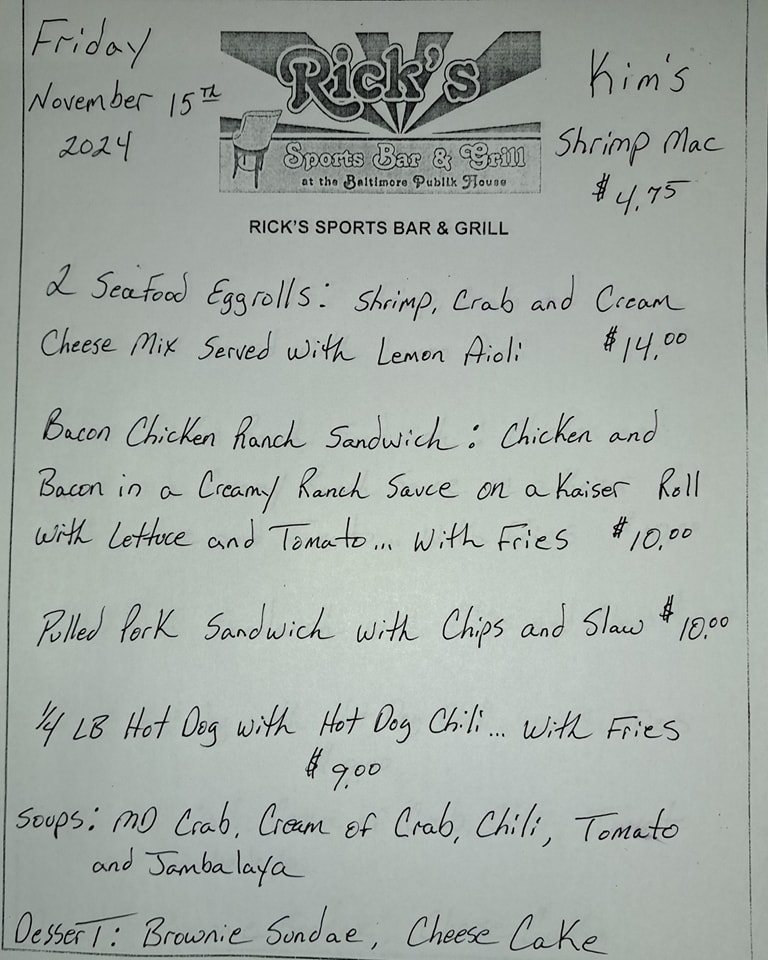 Friday
November 15TH
2024
Rick's
Sports Bar & Grill
at the Baltimore Publik House
RICK'S SPORTS BAR & GRILL
Kim's
Shrimp Mac
$4.75
2 Seafood Eggrolls: Shrimp, Crab and Cream
Cheese Mix Served with Lemon Aioli $14.00
Bacon Chicken Ranch Sandwich: Chicken and
Bacon in a Creamy Ranch Sauce on a Kaiser Roll
with Lettuce and Tomato... With Fries $10.00
Pulled Pork Sandwich with Chips and Slaw $10.00
1/4 LB Hot Dog with Hot Dog Chili... With Fries
$9.00
Soups: MD Crab, Cream of Crab, Chili, Tomato
and Jambalaya
Dessert: Brownie Sundae, Cheese Cake